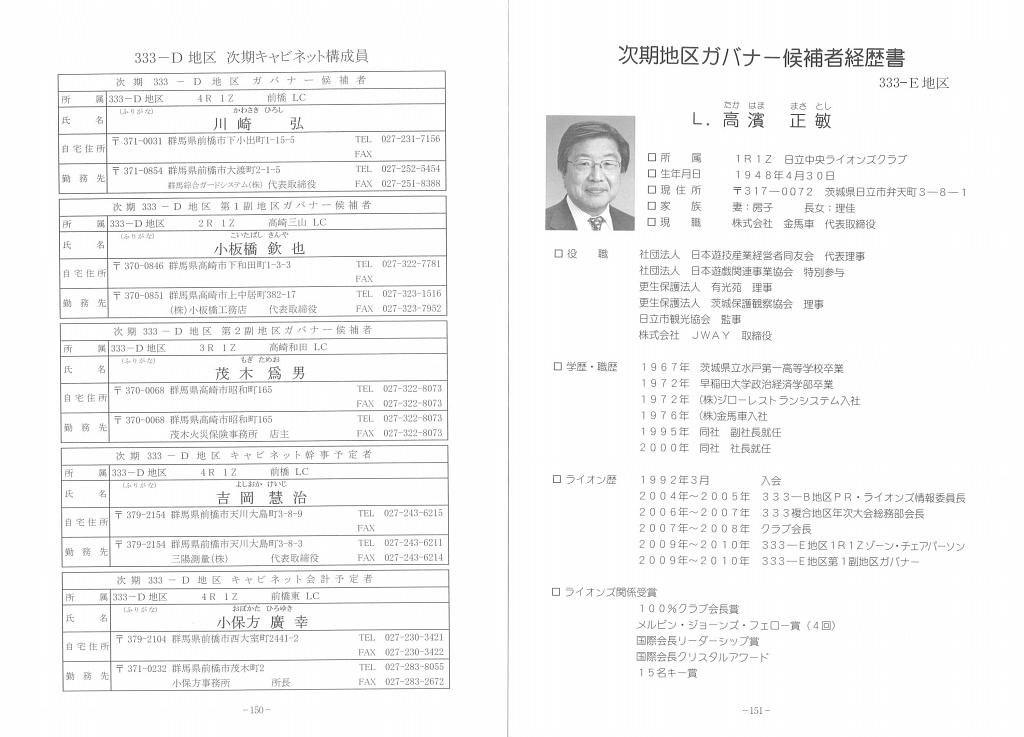 333－D 地区 次期キャビネット構成員
次期 333－D 地区 ガバナー候補者
所属 333－D 地区 4R 1Z 前橋 LC
(ふりがな) かわさき ひろし
氏名 川﨑 弘
自宅住所 〒371-0031 群馬県前橋市下小出町1-15-5 TEL 027-231-7156
FAX
勤務先 〒371-0854 群馬県前橋市大渡町2-1-5 TEL 027-252-5454
群馬綜合ガードシステム(株) 代表取締役 FAX 027-251-8388
次期 333－D 地区 第1副地区ガバナー候補者
所属 333－D 地区 2R 1Z 高崎三山 LC
(ふりがな) こいたばし きんや
氏名 小板橋 欽也
自宅住所 〒370-0846 群馬県高崎市下和田町1-3-3 TEL 027-322-7781
FAX
勤務先 〒370-0851 群馬県高崎市上中居町382-17 TEL 027-323-1516
(株)小板橋工務店 代表取締役 FAX 027-323-7952
次期 333－D 地区 第2副地区ガバナー候補者
所属 333－D 地区 3R 1Z 高崎和田 LC
(ふりがな) もぎ ためお
氏名 茂木 爲男
自宅住所 〒370-0068 群馬県高崎市昭和町165 TEL 027-322-8073
FAX 027-322-8073
勤務先 〒370-0068 群馬県高崎市昭和町165 TEL 027-322-8073
茂木火災保険事務所 店主 FAX 027-322-8073
次期 333－D 地区 キャビネット幹事予定者
所属 333－D 地区 4R 1Z 前橋 LC
(ふりがな) よしおか けいじ
氏名 吉岡 慧治
自宅住所 〒379-2154 群馬県前橋市天川大島町3-8-9 TEL 027-243-6215
FAX
勤務先 〒379-2154 群馬県前橋市天川大島町3-8-3 TEL 027-243-6211
三陽測量(株) 代表取締役 FAX 027-243-6214
次期 333－D 地区 キャビネット会計予定者
所属 333－D 地区 4R 1Z 前橋東 LC
(ふりがな) おぼかた ひろゆき
氏名 小保方 廣幸
自宅住所 〒379-2104 群馬県前橋市西大室町2441-2 TEL 027-230-3421
FAX 027-230-3422
勤務先 〒371-0232 群馬県前橋市茂木町2 TEL 027-283-8055
小保方事務所 所長 FAX 027-283-2672
－150－
次期地区ガバナー候補者経歴書
333-E地区
たか はま まさ とし
L. 高濱 正敏
□ 所属 1R1Z 日立中央ライオンズクラブ
□ 生年月日 1948年4月30日
□ 現住所 〒317－0072 茨城県日立市弁天町3－8－1
□ 家族 妻：房子 長女：理佳
□ 現職 株式会社 金馬車 代表取締役
□ 役職 社団法人 日本遊技産業経営者同友会 代表理事
社団法人 日本遊戯関連事業協会 特別参与
更生保護法人 有光苑 理事
更生保護法人 茨城保護観察協会 理事
日立市観光協会 監事
株式会社 JWAY 取締役
□ 学歴・職歴 1967年 茨城県立水戸第一高等学校卒業
1972年 早稲田大学政治経済学部卒業
1972年 (株)ジローレストランシステム入社
1976年 (株)金馬車入社
1995年 同社 副社長就任
2000年 同社 社長就任
□ ライオン歴 1992年3月 入会
2004年～2005年 333－B地区PR・ライオンズ情報委員長
2006年～2007年 333複合地区年次大会総務部会長
2007年～2008年 クラブ会長
2009年～2010年 333－E地区1R1Zゾーン・チェアパーソン
2009年～2010年 333－E地区第1副地区ガバナー
□ ライオンズ関係受賞
100％クラブ会長賞
メルビン・ジョーンズ・フェロー賞（4回）
国際会長リーダーシップ賞
国際会長クリスタルアワード
15名キー賞
－151－